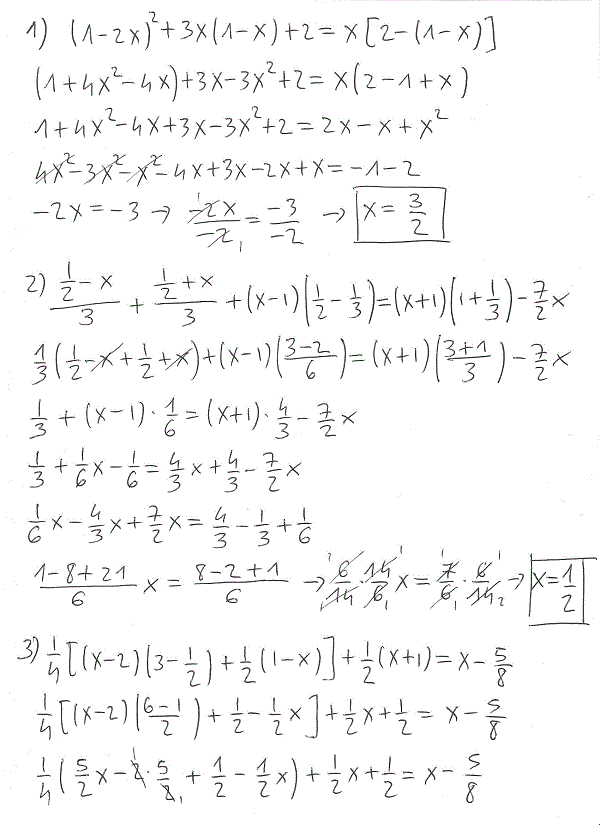 1) (1-2x)²+3x(1-x)+2=x[2-(1-x)]
(1+4x²-4x)+3x-3x²+2=x(2-1+x)
1+4x²-4x+3x-3x²+2=2x-x+x²
4x²-3x²-x²-4x+3x-2x+x=-1-2
-2x=-3 → -2x/-2 = -3/-2 → x=3/2
2) (1/2-x)/3 + (1/2+x)/3 + (x-1)(1/2-1/3)=(x+1)(1+1/3)-7/2x
1/3(1/2-x+1/2+x)+(x-1)((3-2)/6)=(x+1)((3+1)/3)-7/2x
1/3+(x-1)·1/6=(x+1)·4/3-7/2x
1/3+1/6x-1/6=4/3x+4/3-7/2x
1/6x-4/3x+7/2x=4/3-1/3+1/6
(1-8+21)/6 x = (8-2+1)/6 → 1 6/14 1 · 14/6 1 1 x = 1 7/6 1 · 6/14 1 2 → x=1/2
3) 1/4[(x-2)(3-1/2)+1/2(1-x)]+1/2(x+1)=x-5/8
1/4[(x-2)((6-1)/2)+1/2-1/2x]+1/2x+1/2=x-5/8
1/4(5/2x-2·5/2+1/2-1/2x)+1/2x+1/2=x-5/8